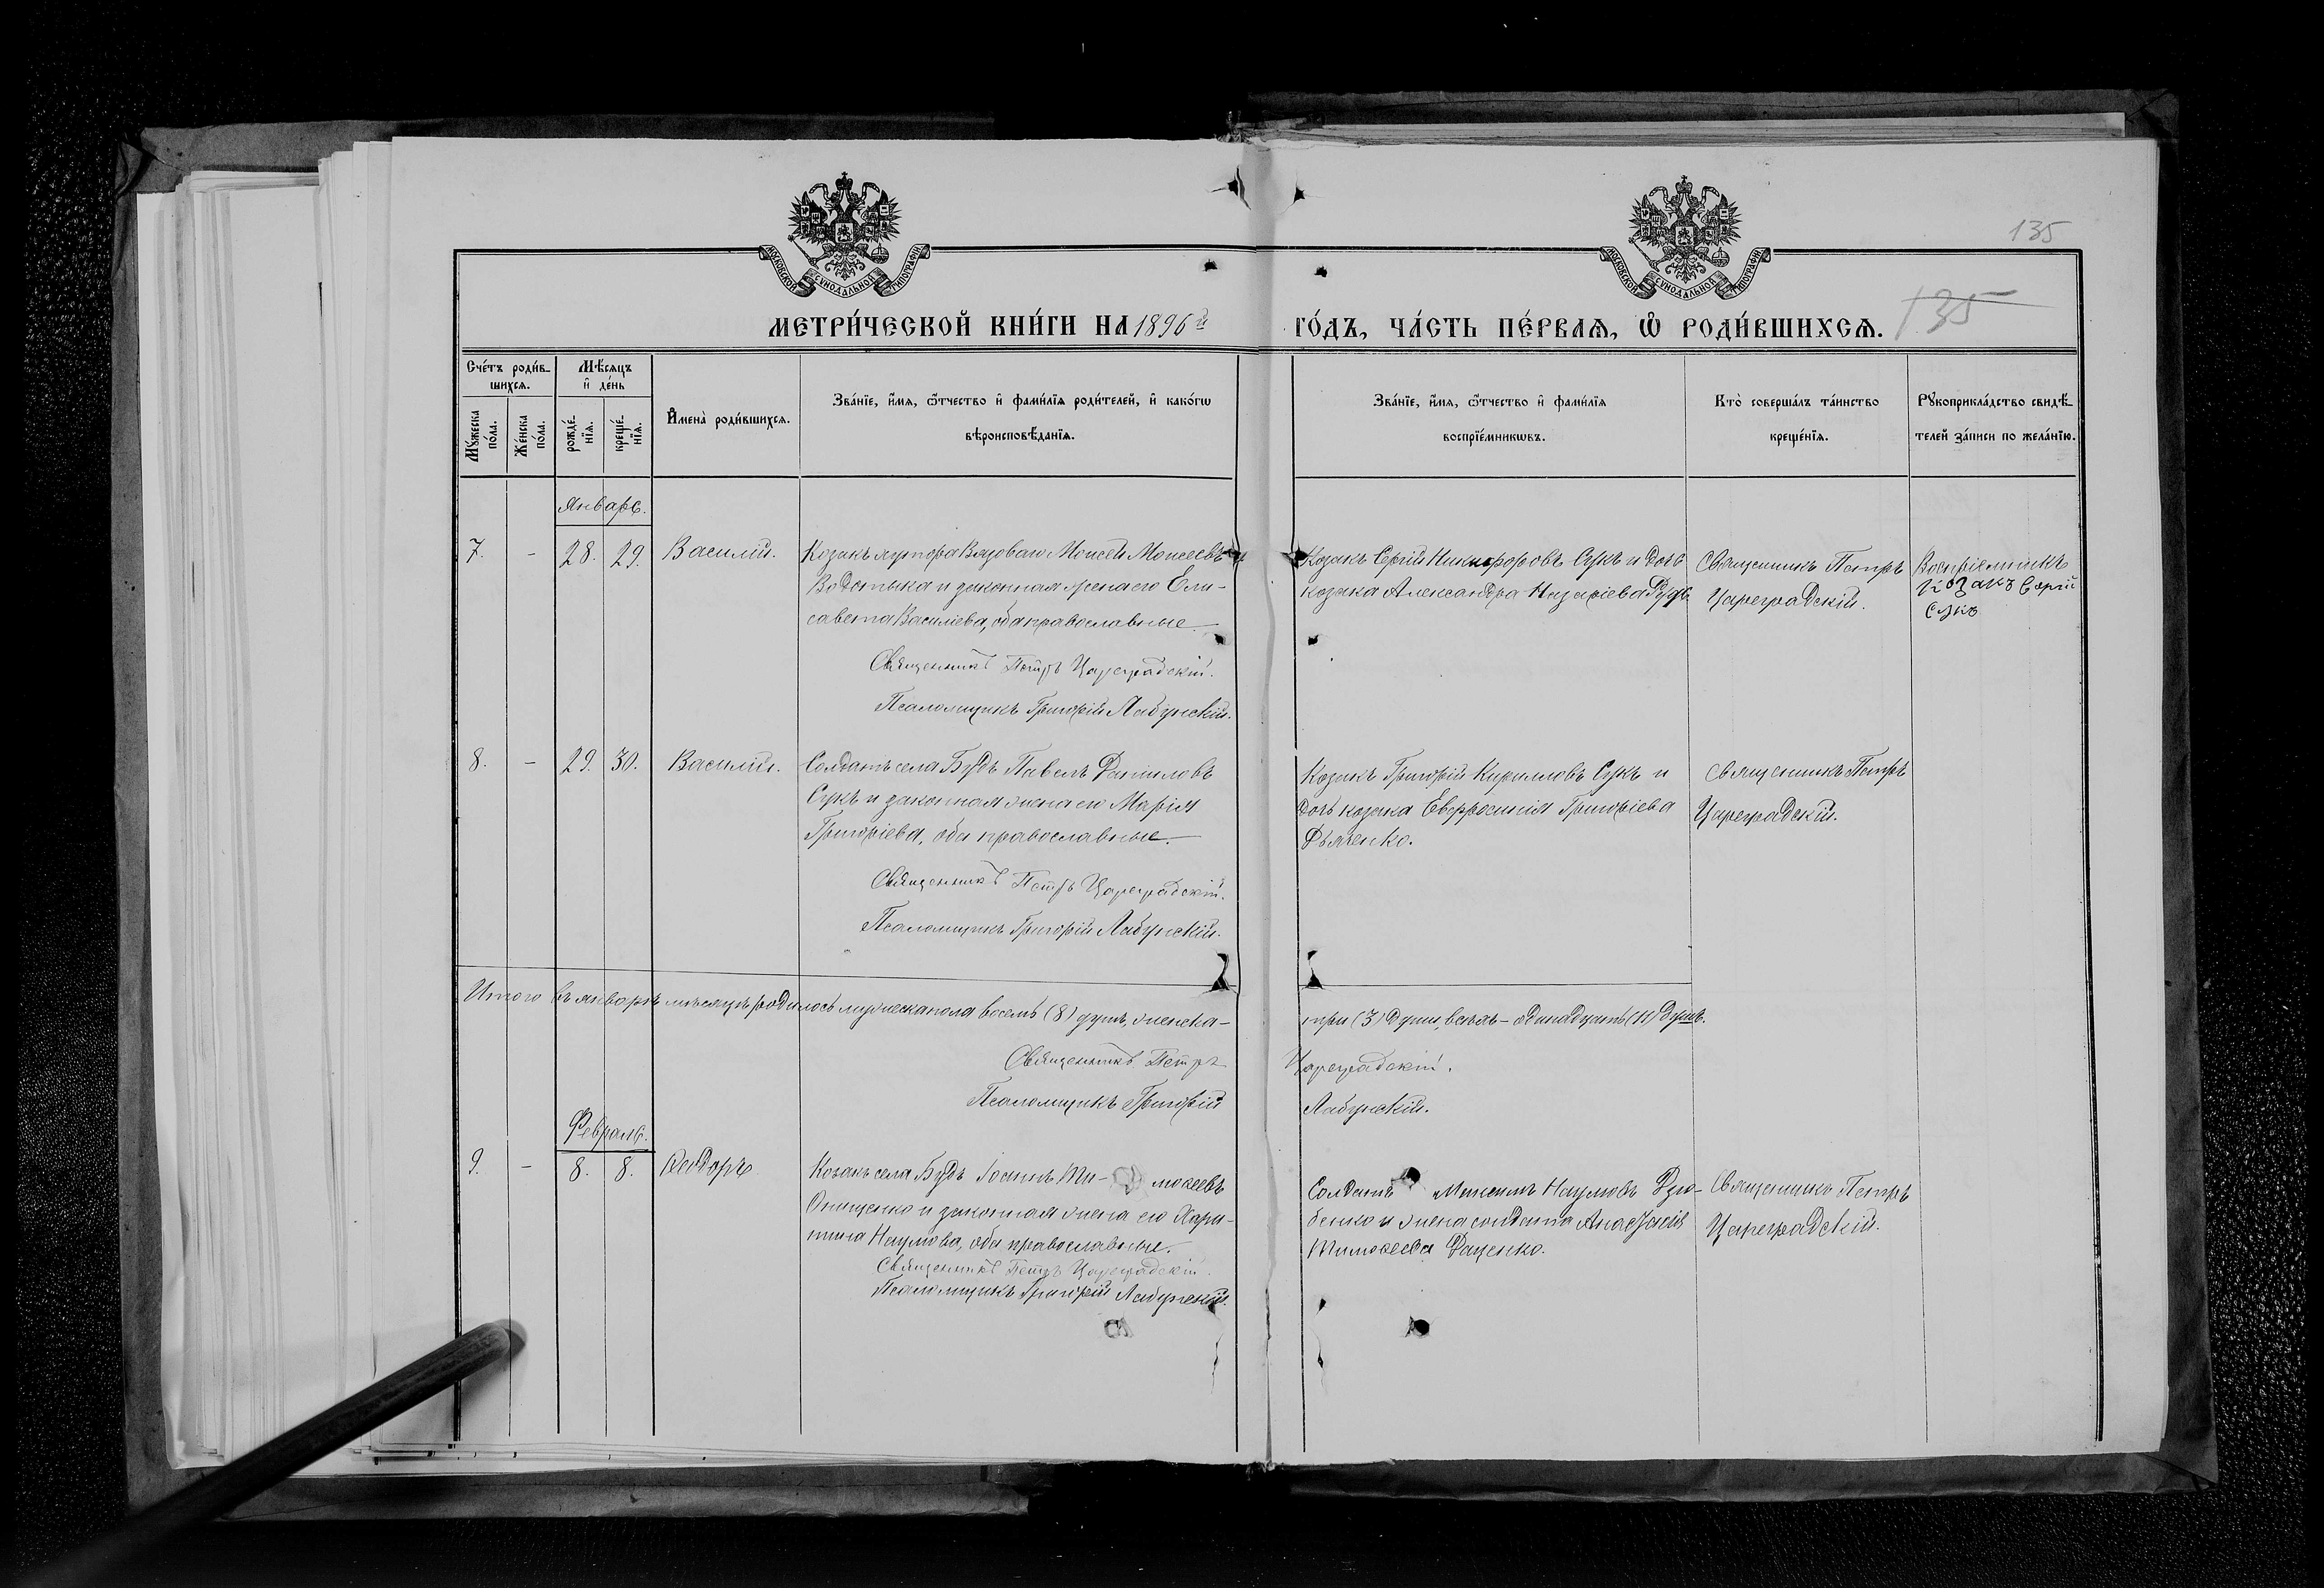 135
МОСКОВСКОЙ СѴНОДАЛЬНОЙ ТИПОГРАФІИ
МОСКОВСКОЙ СѴНОДАЛЬНОЙ ТИПОГРАФІИ
МЕТРИ́ЧЕСКОЙ КНИ́ГИ НА 1896й ГО́ДЪ, ЧА́СТЬ ПЕ́РВАѦ, Ѽ РОДИ́ВШИХСѦ. 135
Сче́тъ роди́в-
шихся.
Мѣ́сяцъ
и҆ де́нь
Мꙋ́жеска
по́ла.
Же́нска
по́ла.
рожде́-
нїя.
креще́-
нїя.
И҆мена̀ роди́вшихся.
Зва́нїе, и҆́мя, ѻ҆́тчество и҆ фами́лїя роди́телей, и҆ како́гѡ
вѣроисповѣ́данїя.
Зва́нїе, и҆́мя, ѻ҆́тчество и҆ фами́лїя
воспрїе́мникѡвъ.
Кто̀ соверша́лъ та́инство
креще́нїя.
Рꙋкоприкла́дство свидѣ́-
телей за́писи по жела́нїю.
Январь.
7. - 28. 29. Василій.
Козакъ хутора Вязоваго Моисей Моисеевъ
Водотыка и законная жена его Ели-
савета Василіева, оба православные
Священникъ Петръ Цареградскій.
Псаломщикъ Григорій Лабунскій.
Козакъ Сергій Никифоровъ Сукъ и дочь
козака Александра Назаріева
Священникъ Петръ
Цареградскій.
Воспріемникъ
Козакъ Сергій
Сукъ
8. - 29. 30. Василій.
Солдатъ села Будъ Павелъ Даниловъ
Сукъ и законная жена его Марія
Григоріева, оба православные.
Священникъ Петръ Цареградскій.
Псаломщикъ Григорій Лабунскій.
Козакъ Григорій Кирилловъ Сукъ и
дочь козака Евфросинія Григоріева
Дьяченко.
Священникъ Петръ
Цареградскій.
Итого въ январѣ мѣсяцѣ родилось мужеска пола восемь (8) душъ, женска- три (3) души, всѣхъ - одинадцать (11) душъ.
Священникъ Петръ Цареградскій.
Псаломщикъ Григорій Лабунскій.
Февраль.
9. - 8. 8. Ѳеодоръ
Козакъ села Будъ Іоаннъ Ти- моѳеевъ
Онищенко и законная жена его Хари-
тина Наумова, оба православные.
Священникъ Петръ Цареградскій.
Псаломщикъ Григорій Лабунскій.
Солдатъ Максимъ Наумовъ Дзю-
бенко и жена солдата Анастасія
Тимоѳеева Даценко.
Священникъ Петръ
Цареградскій.